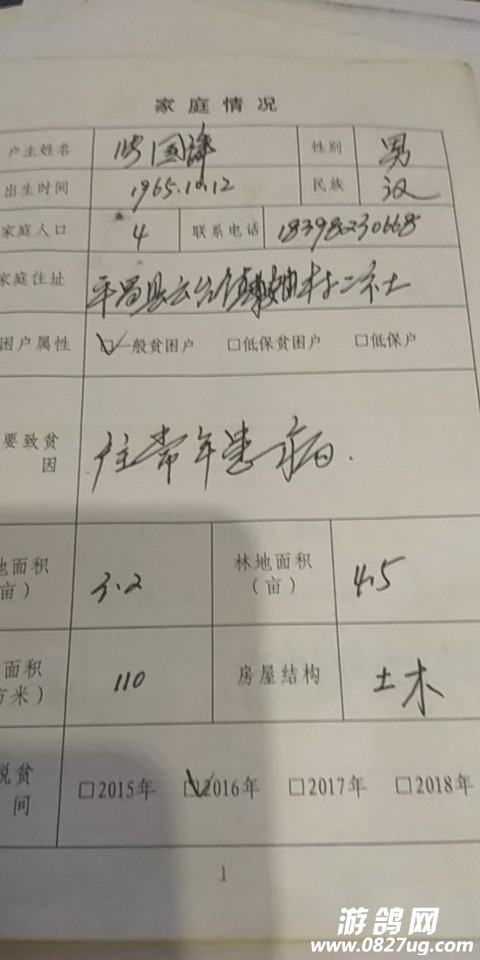 家庭情况
户主姓名 国 性别 男
出生时间 1965.10.12 民族 汉
家庭人口 4 联系电话 18398230668
家庭住址 平昌县云台镇 村二社
困户属性 ☑一般贫困户 □低保贫困户 □低保户
要致贫 户主常年患病.
因
地面积 3.2 林地面积 4.5
亩) (亩)
面积 110 房屋结构 土木
方米)
脱贫 □2015年 ☑2016年 □2017年 □2018年
间
1
游鸽网
www.0827ug.com